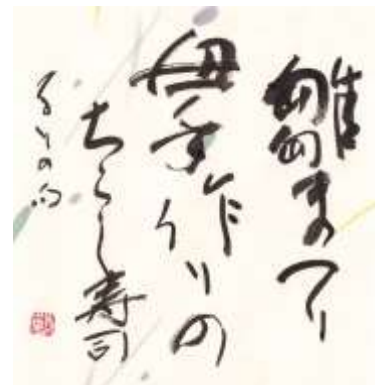 雛まつり
母手作りの
ちらし寿司